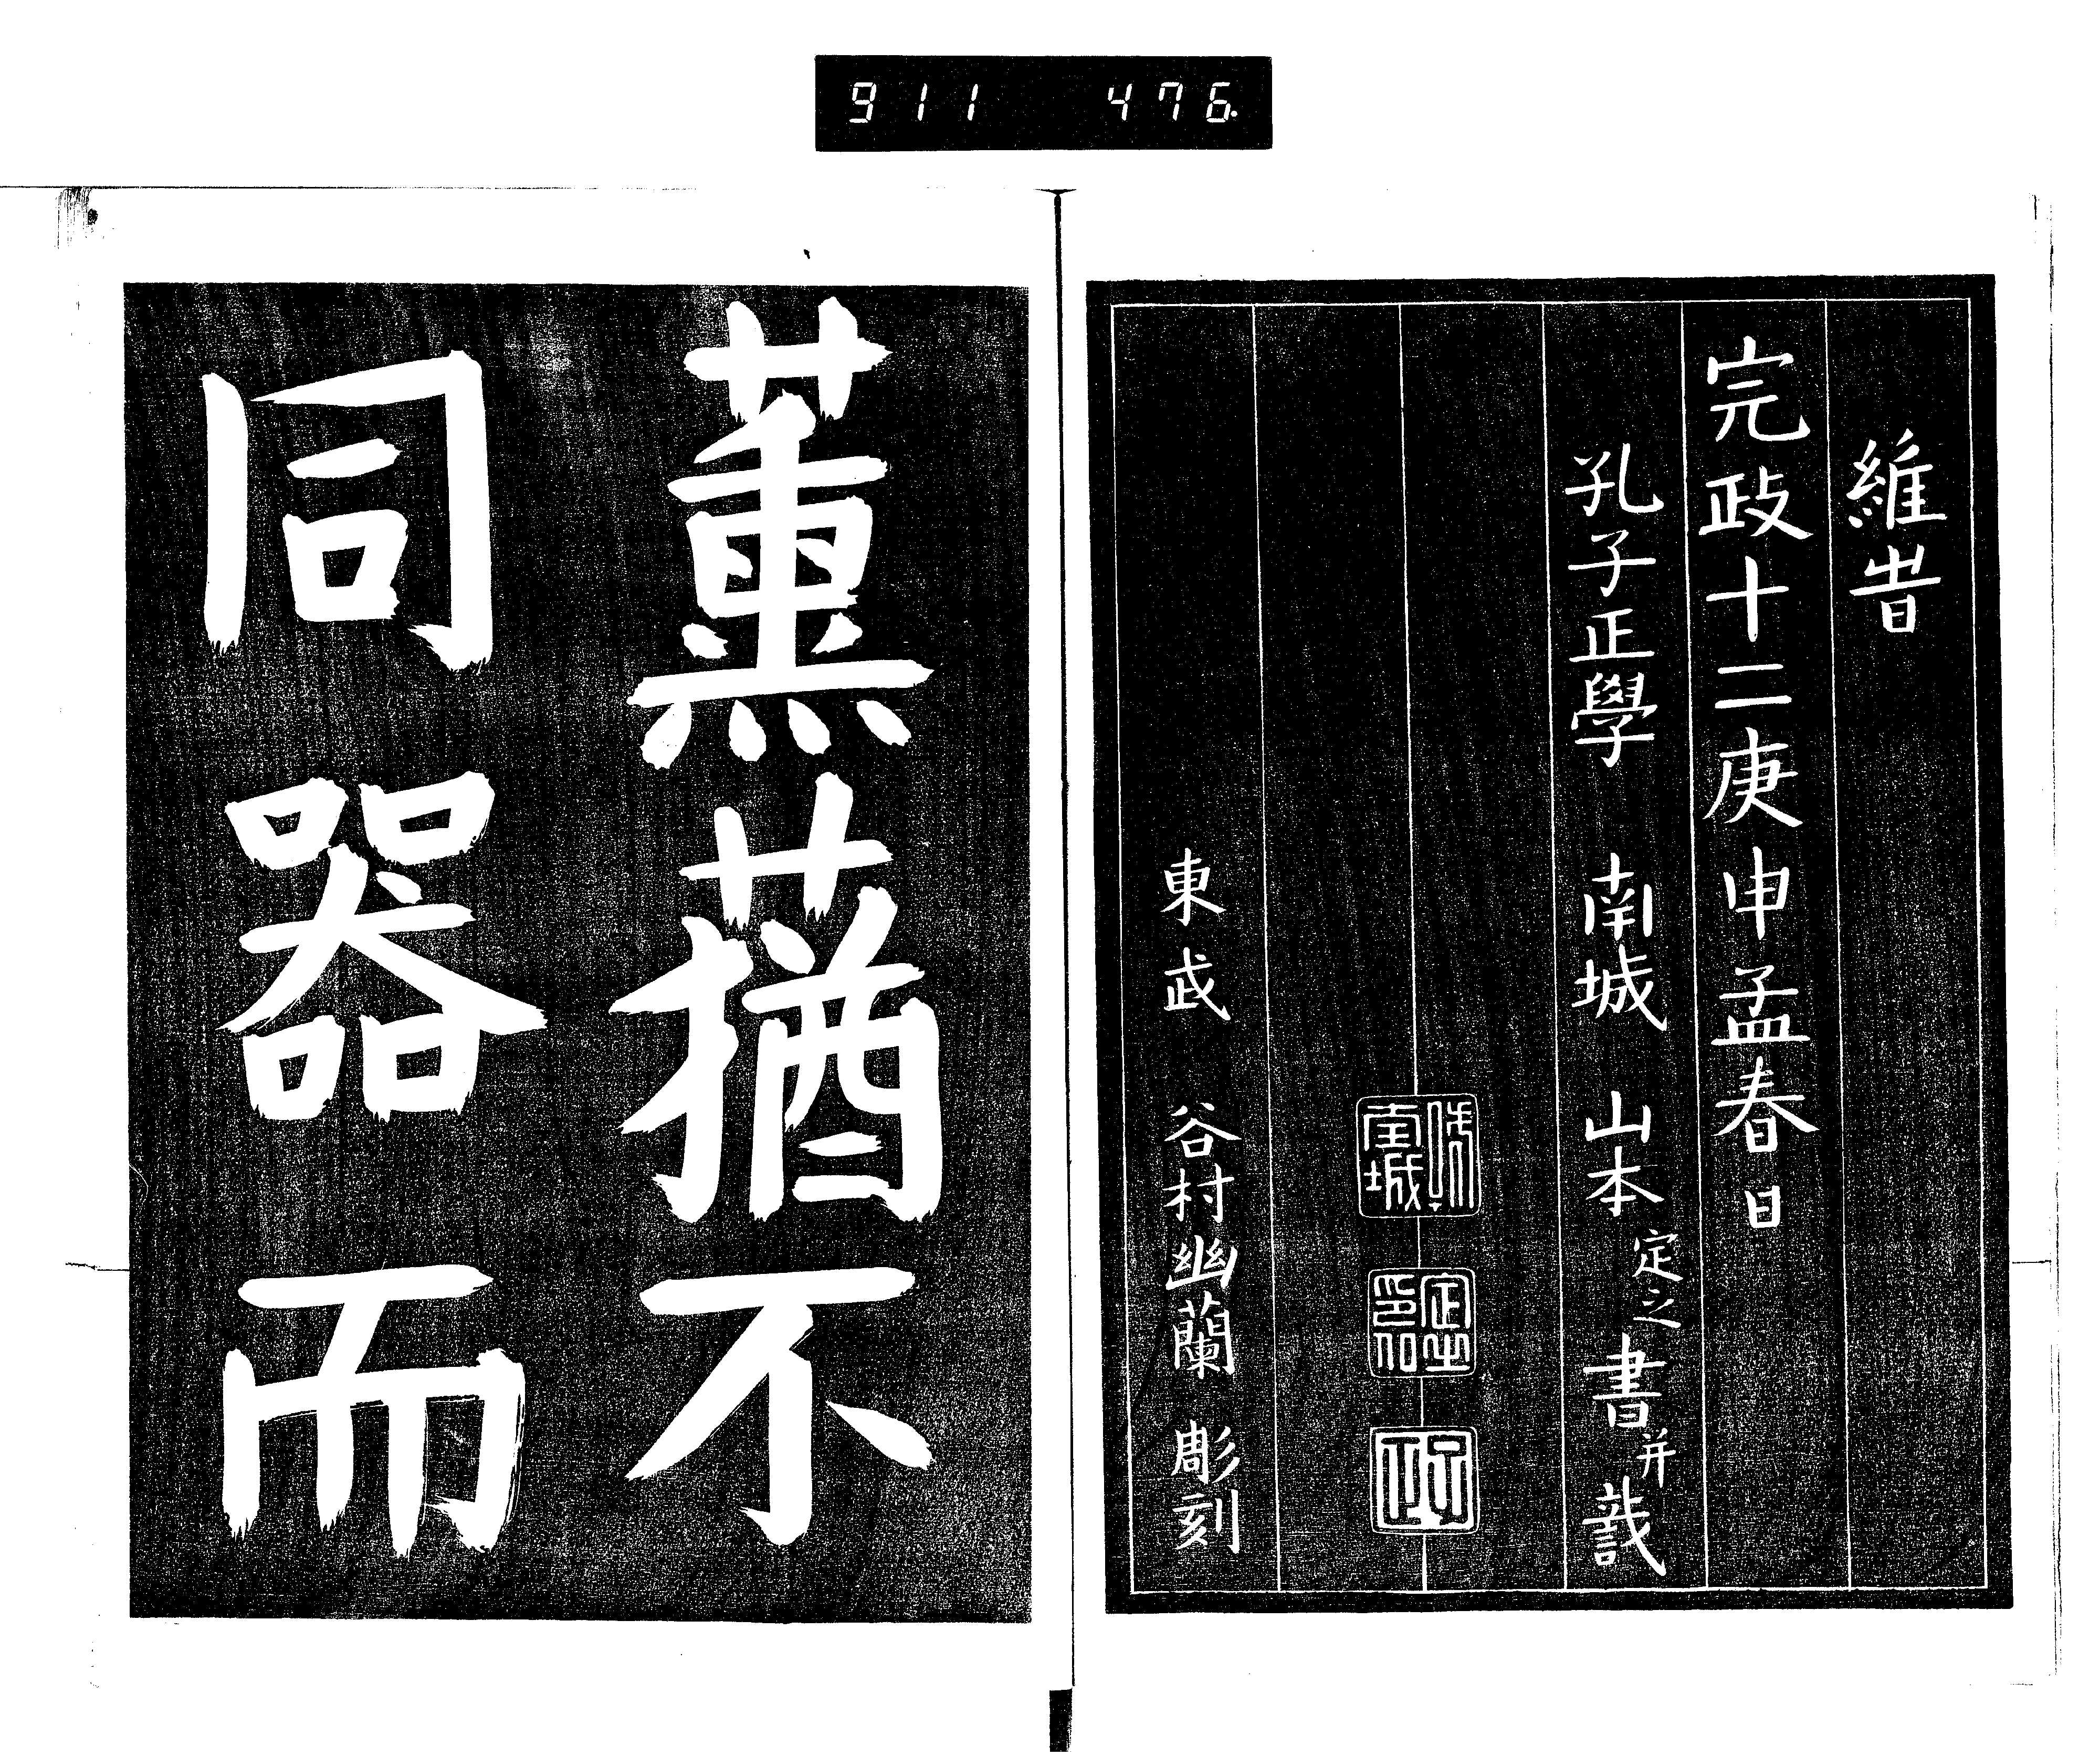 911 476.
維旹
完政十二庚申孟春日
孔子正學 南城 山本定之書并識
東武 谷村幽蘭 彫刻
薫蕕不
同器而